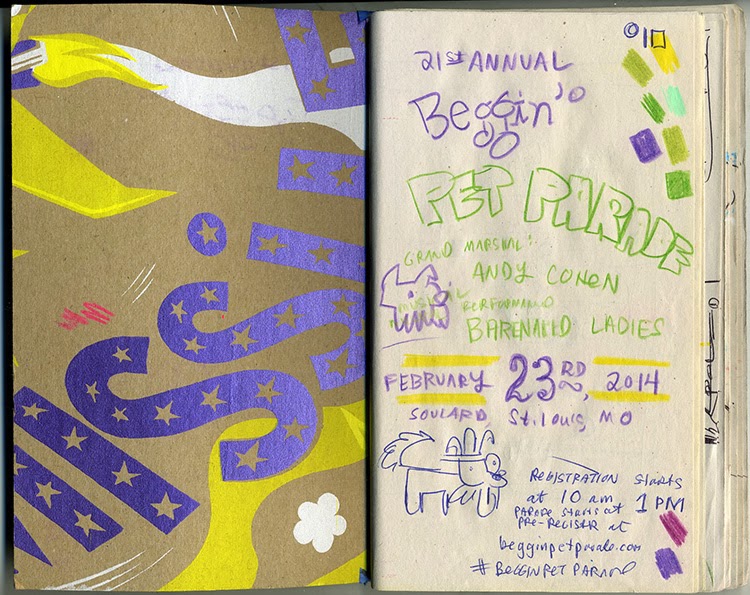 MISSi
21st ANNUAL
Beggin'
PET PARADE
GRAND MARSHAL:
ANDY COHEN
MUSICAL PERFORMANCE
BARENAKED LADIES
FEBRUARY 23RD, 2014
SOULARD, St. Louis, MO
REGISTRATION starts
at 10 am
PARADE Starts at 1 PM
PRE-REGISTR at
begginpetparade.com
#BEGGINPET PARADE